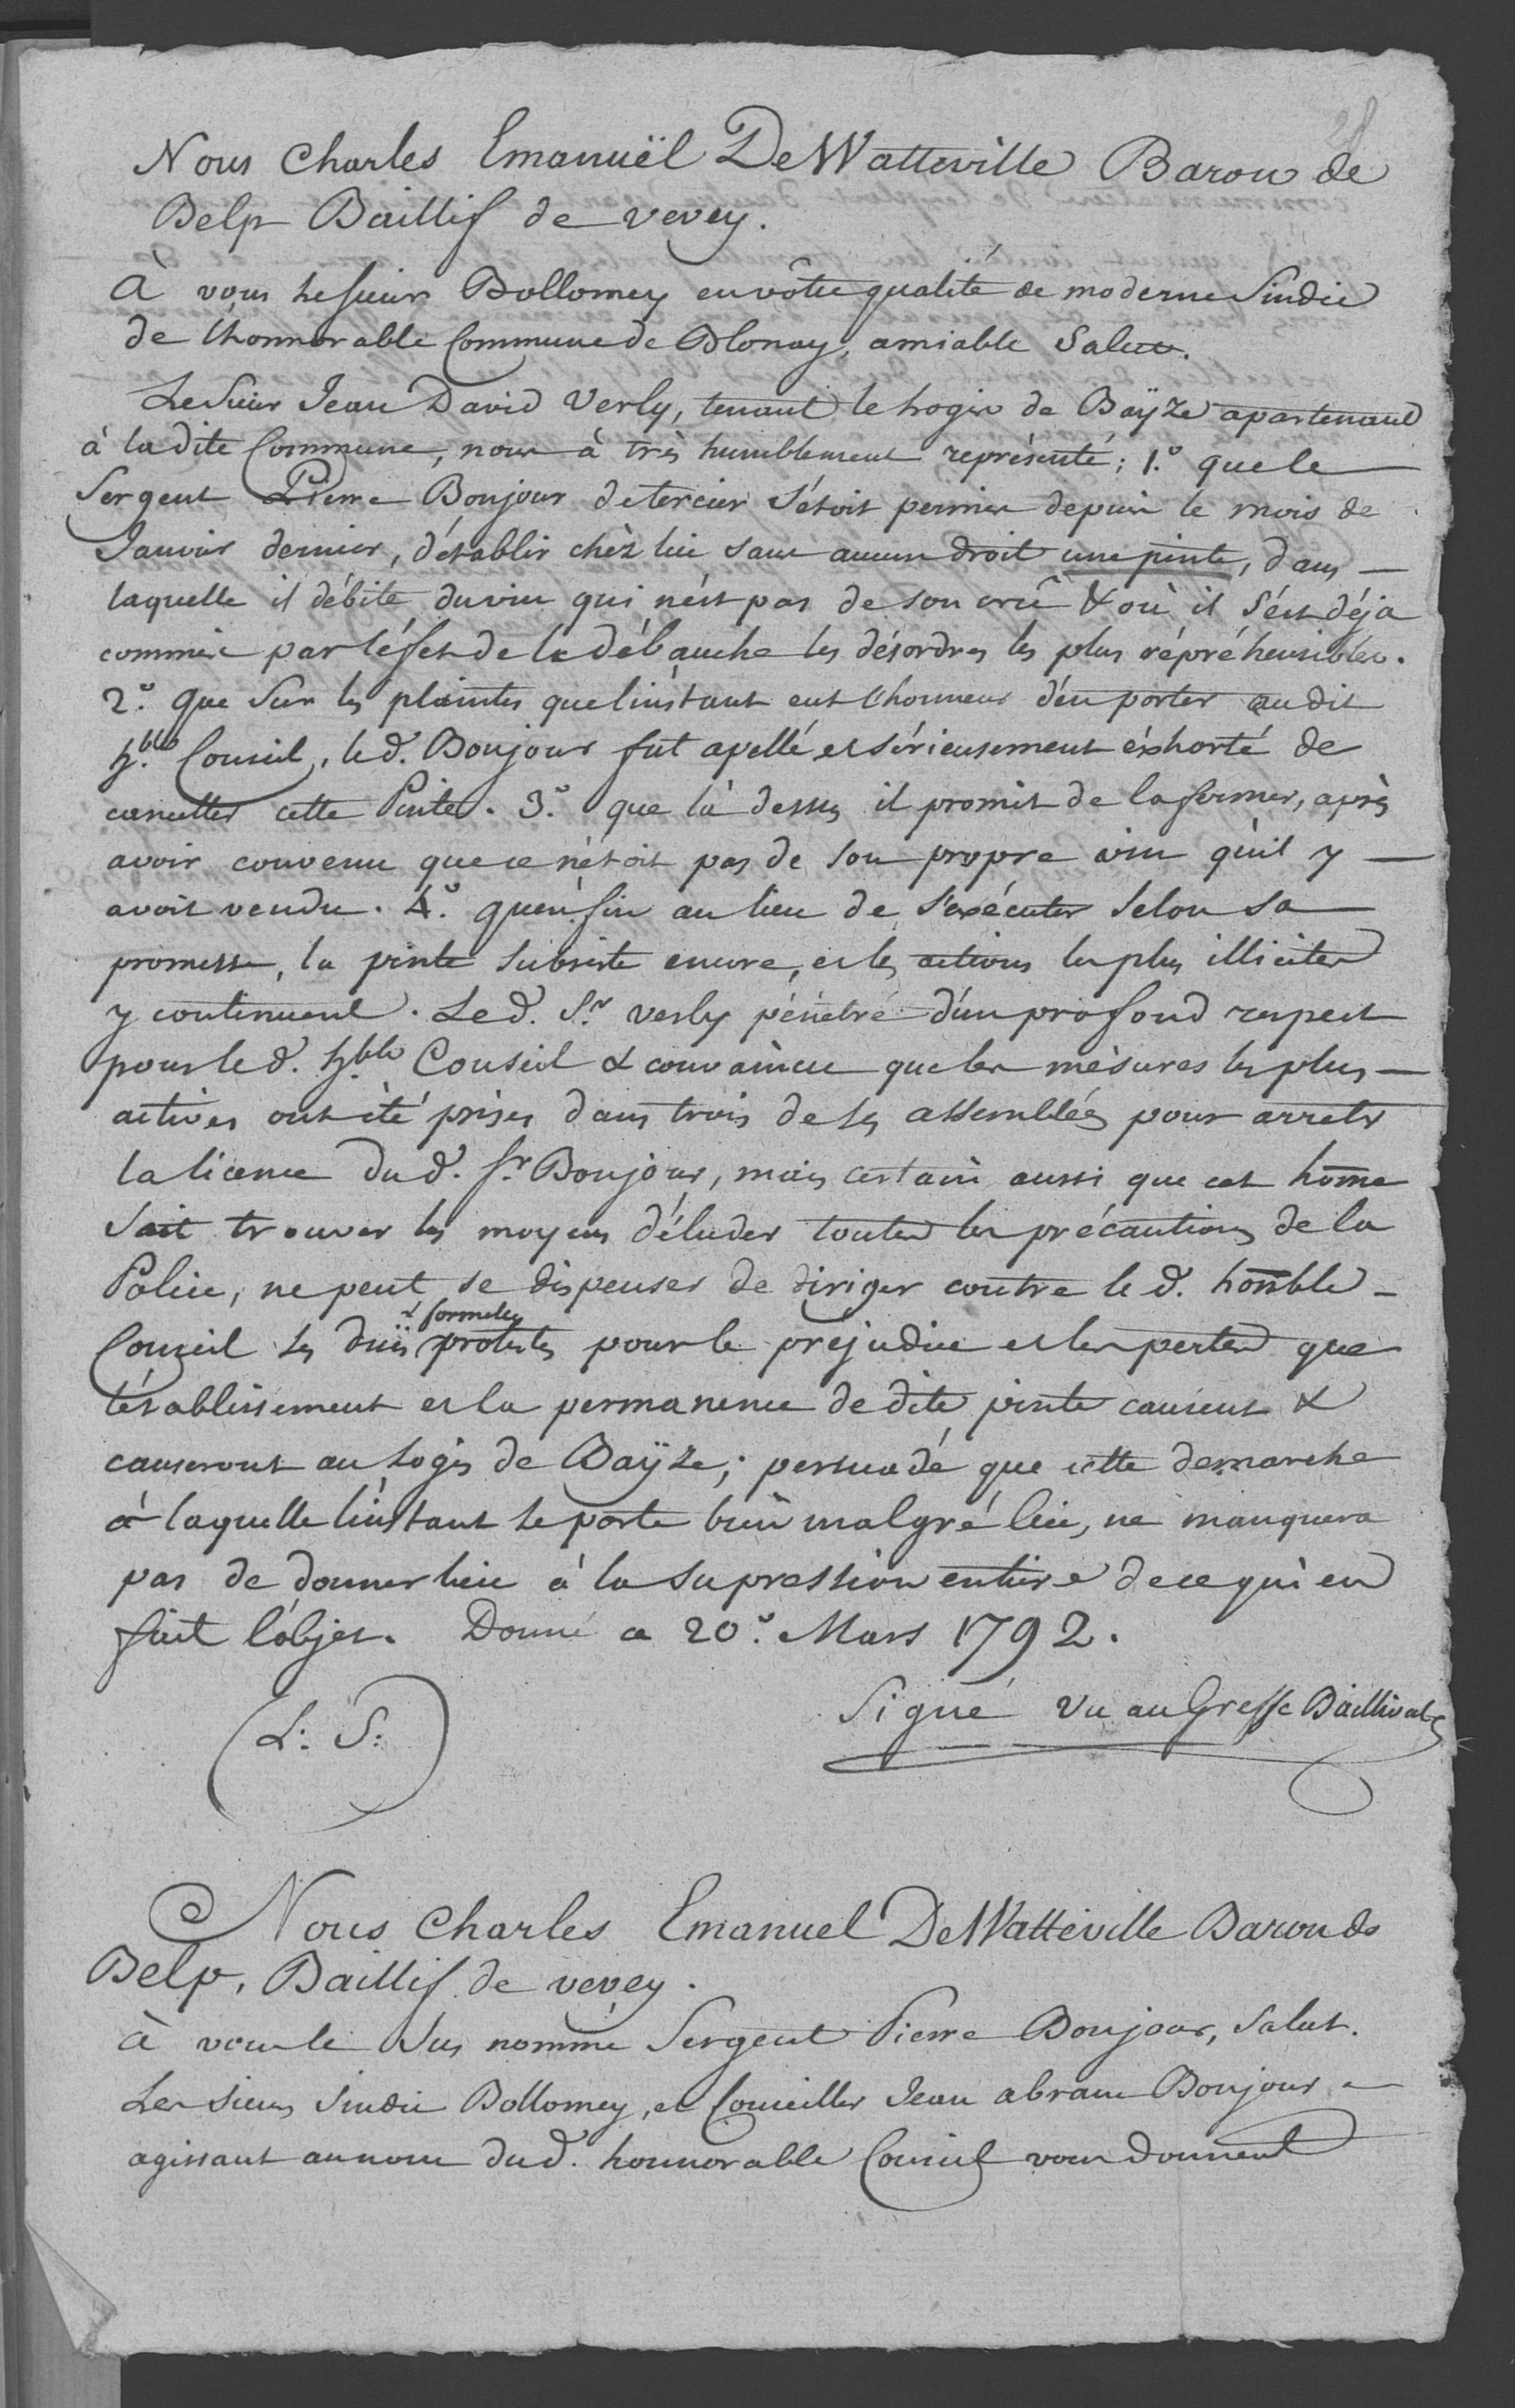 Nous Charles Emanuël De Watteville Baron de
Belp Baillif de vevey.
À vous le sieur Bollomey en vôtre qualité de moderne Sindic
de l'honnorable Commune de Blonay, amiable Salut.
Le Sieur Jean David Verly, tenant le Logis de Baÿze apartenant
à la dite Commune, nous à très humblement représenté; 1.º que le
Sergent Pierre Bonjour de tercier s'étoit permis depuis le mois de
Janvier dernier, d'établir chèz lui sans aucun droit une pinte, dans
laquelle il débite du vin qui n'est pas de son crû & où il s'est déja
commis par l'éfet de la débauche les désordres les plus répréhensibles.
2.º que sur les plaintes que l'instant eut l'honneur d'en porter au dit
h.ble Conseil, le d. Bonjour fut apellé et sérieusement éxhorté de
canceller cette Pinte. 3.º que là dessus il promit de la fermer, après
avoir convenu que ce n'étoit pas de son propre vin qu'il y
avoit vendu. 4.º qu'en fin au lieu de s'exécuter selon sa
promesse, la pinte subsiste encore, et les actions les plus illicites
y continuent. Le d. S.r verly pénétré d'un profond respect
pour le d. h.ble Conseil & convaincu que les mésures les plus
actives ont été prises dans trois de ses assemblées pour arreter
la licence du d. S.r Bonjour, mais certain aussi que cet home
sait trouver les moyens d'éluder toutes les précautions de la
Police, ne peut se dispenser de diriger contre le d. honble
& formeles
Conseil ses dues protestes pour le préjudice et les pertes que
l'établissement et la permanence de dite pinte causent &
causeront au Logis de Baÿze; persuadé que cette demarche
à laquelle l'instant se porte bien malgré lui, ne manquera
pas de donner lieu à la supression entiere de ce qui en
fait l'objet. Donné ce 20.e Mars 1792.
(L: S:)
Signé Vu au Greffe Baillival
Nous Charles Emanuel De Watteville Baron de
Belp, Baillif de vevey.
à vous le Sus nommé Sergent Pierre Bonjour, Salut.
Les sieurs Sindic Bollomey, et Conseiller Jean abram Bonjour
agissant au nom du d. honnorable Conseil vous donnent